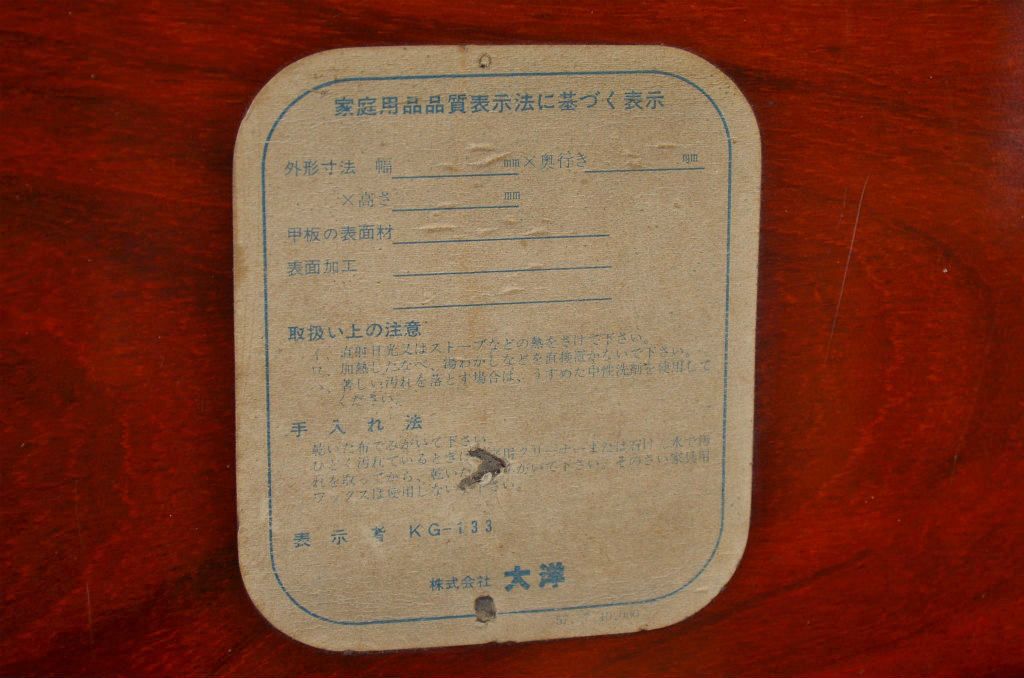 家庭用品品質表示法に基づく表示
外形寸法 幅 mm×奥行き mm
×高さ mm
甲板の表面材
表面加工
取扱い上の注意
イ、直射日光又はストーブなどの熱をさけて下さい。
ロ、加熱したなべ、湯わかしなどを直接置かないで下さい。
ハ、著しい汚れを落とす場合は、うすめた中性洗剤を使用して
ください。
手入れ法
乾いた布でみがいて下さい。
ひどく汚れているときは クリーナーまたは石けん水で汚
れを取ってから、乾いた がいて下さい。そのさい家具用
ワックスは使用しないで下さい。
表示者 KG-133
株式会社 大洋
57.